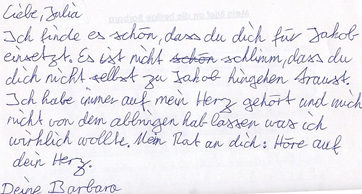 Liebe, Julia
Ich finde es schön, dass du dich für Jakob
einsetzt. Es ist nicht schön schlimm, dass du
dich nicht selbst zu Jakob hingehen traust.
Ich habe immer auf mein Herz gehört und mich
nicht von dem abbringen hab lassen was ich
wirklich wollte. Mein Rat an dich: Höre auf
dein Herz.
Deine Barbara